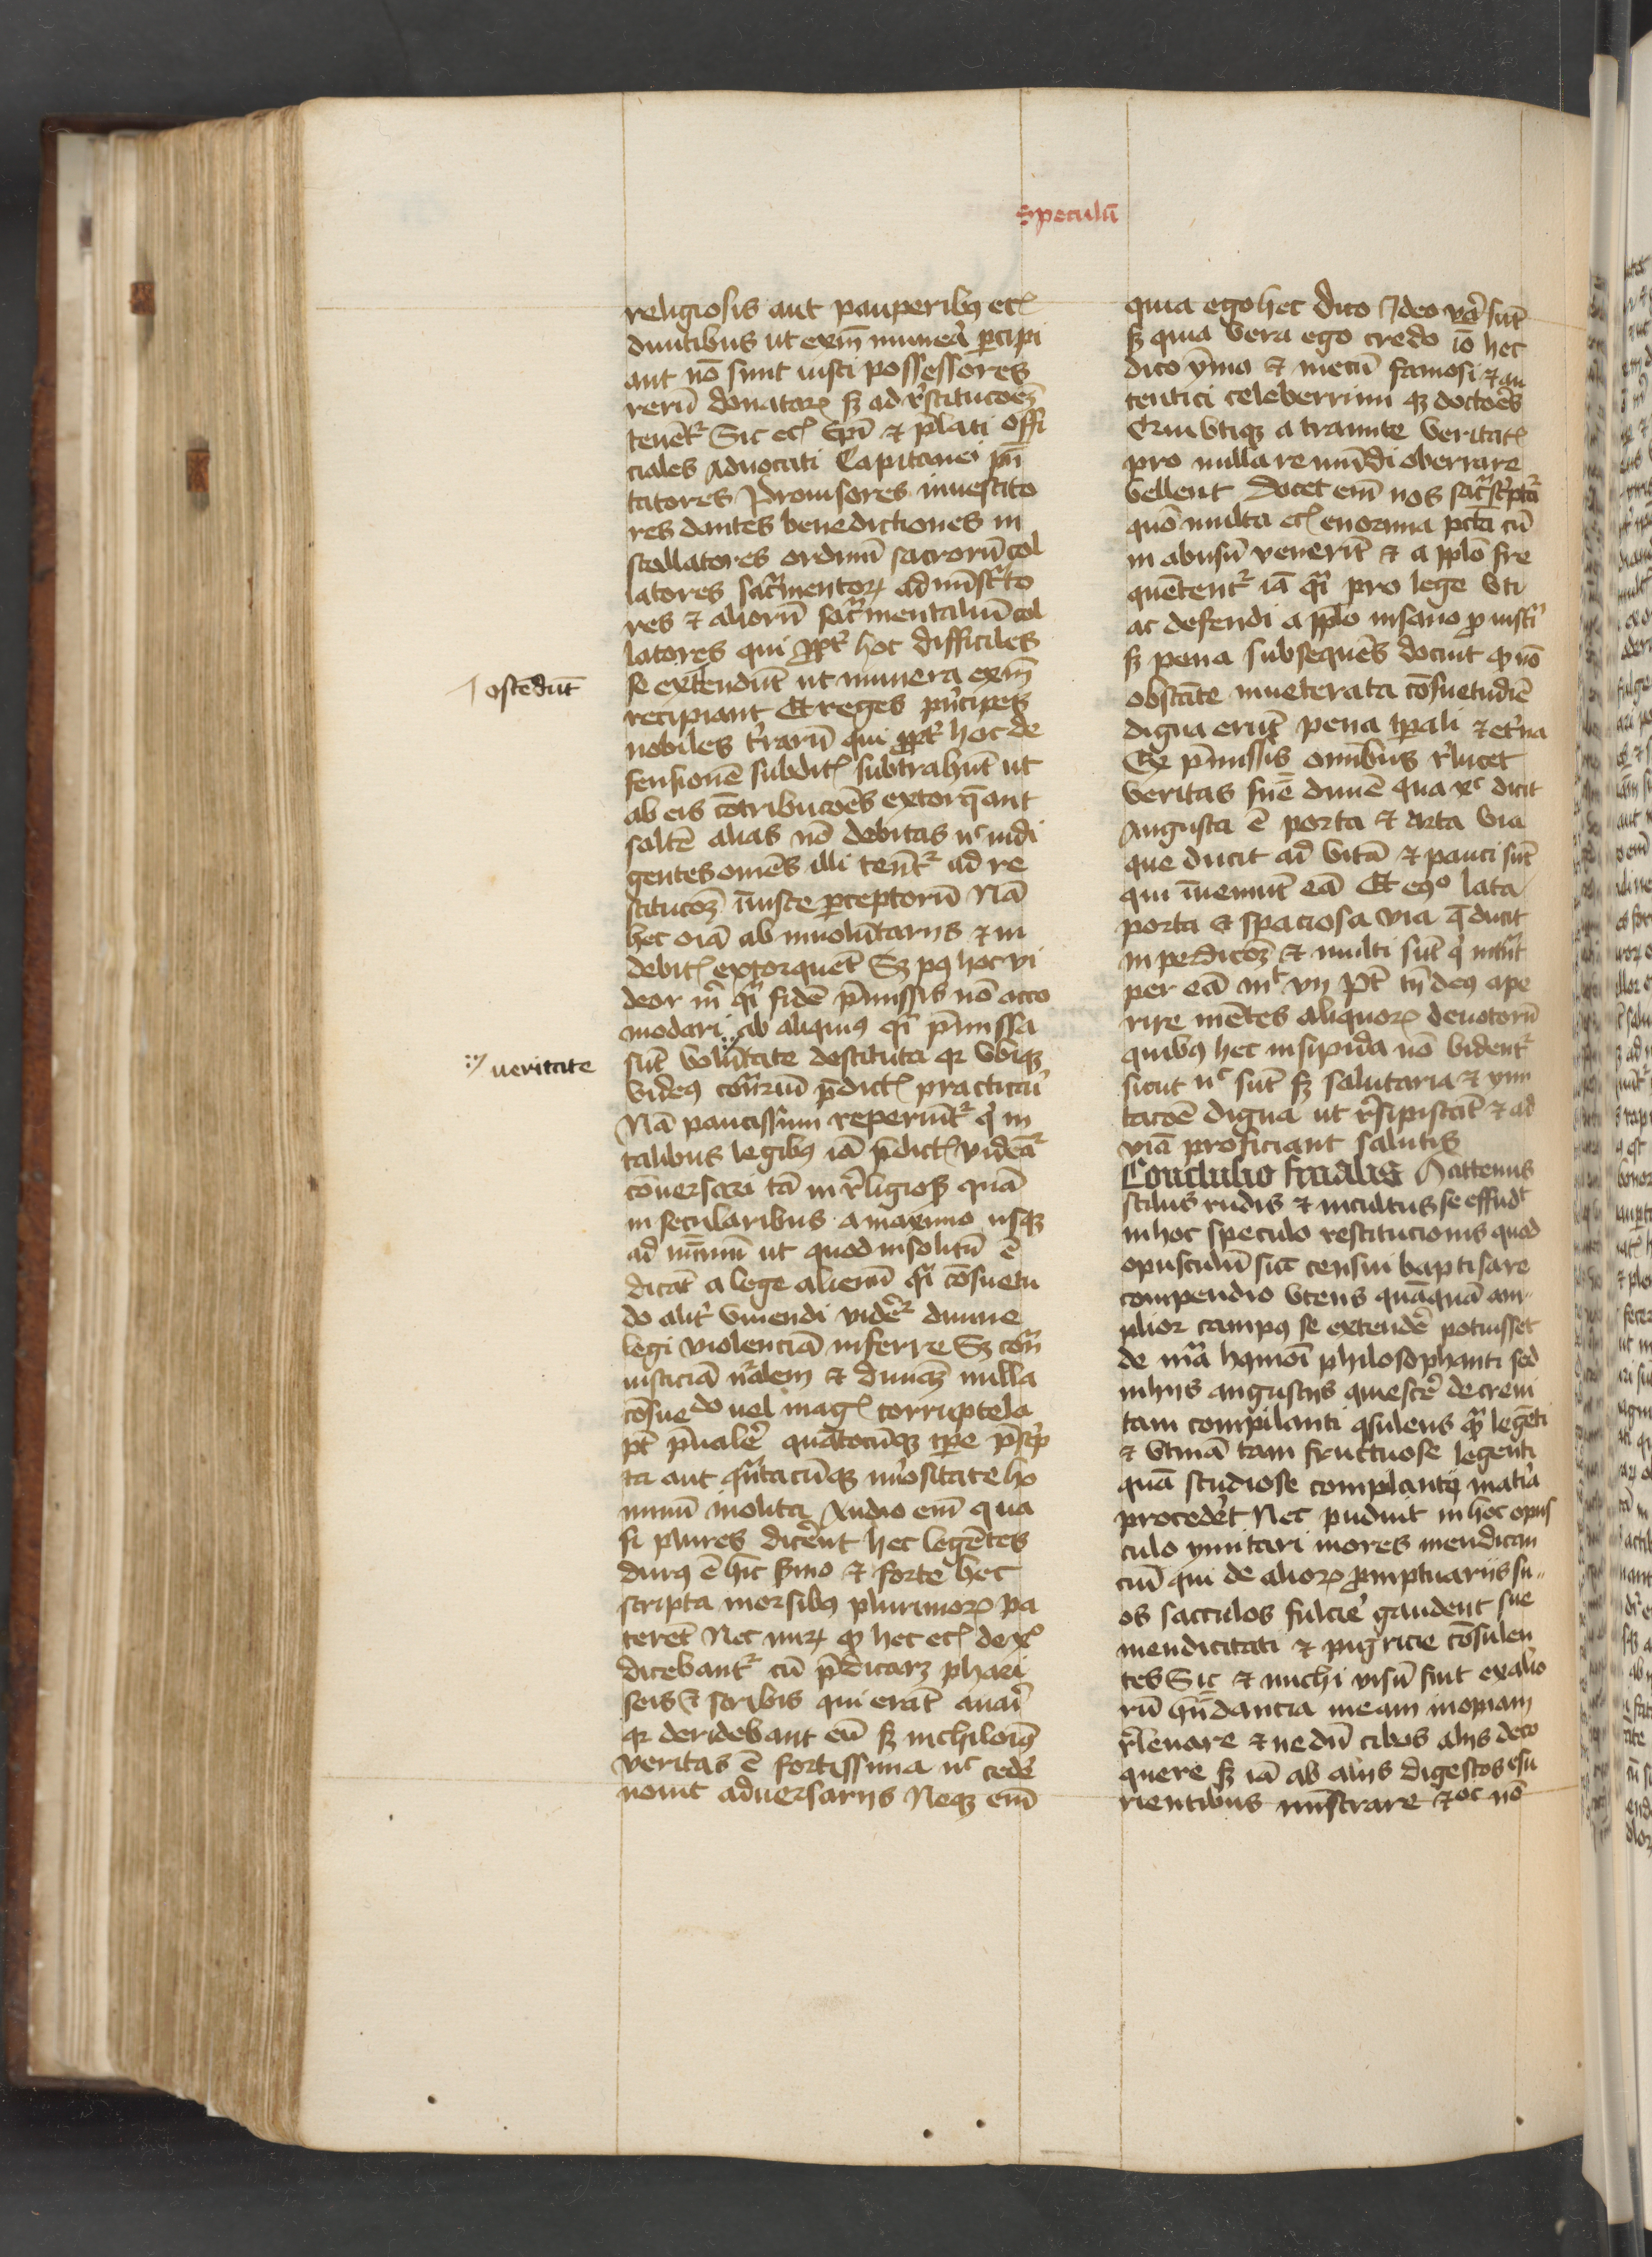 Speculū
religiosis aut pauperibꝫ etꝭ
diuitibus ut exīn munera ꝑcipi
ant nō sunt iusti possessores
rerū donatarꝝ sꝫ ad rͥstitucōeꝫ
tenētᷣ Sic etꝭ Ep̄i ⁊ p̄lati offi
ciales Aduocati Capitanei
tatores Prouisores inuestito
res dantes benedictiones in
stallatores ordinū sacrorū col
latores sacᷓmentorꝝ admīstᷓto
res ⁊ aliorū sacᷓmentaliū col
latores qui ꝓptᷣ hoc difficiles
se extendūt ut munera exīn
ostēdūt
recipiant Et reges pͥncipes
nobiles tᷣrarū qui ꝓptᷣ hoc de
fensionē subditꝭ subtrahūt ut
ab eis cōtribucōes extorq̄ant
saltē alias nō debitas nͨ indi
gentes om̄es illi tenētᷣ ad re
stitucōeꝫ iniuste ꝑceptorū Nā
hec oīa ab inuolūtariis ⁊ in
debitꝭ extorquēt Sꝫ pꝰ hoc vi
deor mͥ qᷓi fidē p̄missis nō acco
modari ab aliquis qᷓi p̄missa
sūt volūtate destituta qꝛ vbiqꝫ
veritate
videꝰ contᷓriū p̄dictꝭ practicari
Nā paucissimi reperiūtᷣ qͥ in
talibus legibꝫ iā p̄dictꝭ videātᷣ
cōuersari tā in rͥligiosꝭ quā
in secularibus a maximo usqꝫ
ad minimū ut quod insolitū ē
dicāt a lege alienū qᷓi cōsuetu
do alitᷣ viuendi vidētᷣ diuine
legi violenciā inferre Sꝫ contᷓ
iusticiā nᷓlem ⁊ diuinā nulla
cōsuedo uel magꝭ corruptela
pt̄ p̄ualeᷣ quātocūqꝫ tp̄e p̄scͥp
ta aut qᷓntacūqꝫ nūᷣositate ho
minū inolita Audio em̄ qua
si plures dicēnt hec legētes
durꝰ ē hic sᷣmo ⁊ forte hec
scripta morsibꝫ plurimorꝝ pa
terēt Nec mirꝝ qꝫ hec etꝭ de xͦ
dicebantᷣ cū p̄dicarꝫ phari
seis ⁊ scribis qui erāt auari
qꝛ deridebant eū sꝫ nichilomͥꝰ
veritas ē fortissima nͨ cedeᷣ
nouit aduersariis Neqꝫ em̄
quia ego hec dico Ideo veᷓ sūt
sꝫ quia vera ego credo iō hec
dico ymo ⁊ mecū famosi ⁊ au
tentici celeberrimi qꝫ doctoēs
Qui vtiqꝫ a tramite veritatꝭ
pro nulla re mūdi oberrare
vellent Docet em̄ nos sacᷓ scͥptᷓa
quō multa etꝭ enormia pctā cū
in abusū venerīt ⁊ a pplō fre
quētentᷣ iā qᷓi pro lege vti
ac defendi a pplō insano ꝑ
sꝫ pena subsequēs docuit qꝫ nō
obstāte inueterata cōsuetudīe
digna erūt pena tp̄ali ⁊ etᷣna
Ex p̄missis omnibus rͥlucet
veritas sn̄e diuine qua xͨ dicit
Angusta ē porta ⁊ Arta via
que ducit ad vitā ⁊ pauci sūt
qui inueniūt eā Et eqͦ lata
porta ⁊ spaciosa via q̄ ducit
in perdicōeꝫ ⁊ multi sūt qͥ intᷓnt
per eā mͭ vij Pt̄ tn̄ deꝰ ape
rire mētes aliquorꝝ deuotorū
quibꝫ hec insipida nō videntᷣ
sicut nͨ sūt sꝫ salutaria ⁊ ymi
tacōe digna ut rͥsipiscāt ⁊ ad
viā proficiant salutis
Conclusio finalis Hactenus
stilus rudis ⁊ incultus se effudᵗ
in hoc speculo restitucionis quod
opusculū sic censui baptisare
compendio vtens quāquā am
plior campꝰ se extendeᷣ potuisset
de mᷓa hmōi philosophanti sed
in hiis angustijs quiesceᷣ decreui
tam compilanti ꝯsulens qᷓꝫ legēti
⁊ vtinā tam fructuose legenti
quā studiose compilanti matīa
procedet Nec puduit in hoc opus
culo ymitari mores mendican
ciū qui de aliorꝝ ꝓmptuariis su
os sacculos fulcieᷣ gaudent sue
mendicitati ⁊ pigricie cōsulen
tes Sic ⁊ michi visū fuit ex alio
rū hn̄dancia meam inopiam
rͥleuare ⁊ nedū cibos aliis deco
quere sꝫ iā ab aliis digestos esu
rientibus ministrare ⁊ oc nō